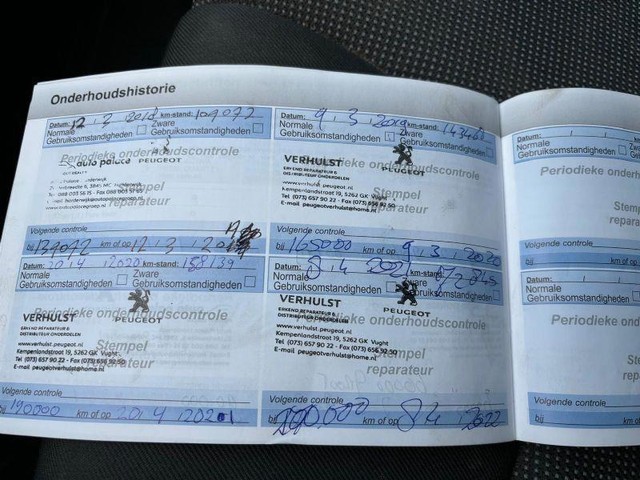 Onderhoudshistorie
Datum: 12 . 2 . 2018 km-stand: 109072
Normale Zware
Gebruiksomstandigheden Gebruiksomstandigheden
Periodieke onderhoudscontrole
auto palace PEUGEOT
Stempel
reparateur
Volgende controle
bij km of op 12 . 2 .
Datum: 9 . 3 . 2019 km-stand:
Normale Zware
Gebruiksomstandigheden Gebruiksomstandigheden
Periodieke onderhoudscontrole
VERHULST PEUGEOT
ERKEND REPARATEUR &
DISTRIBUTEUR ONDERDELEN
www.verhulst.peugeot.nl
Kempenlandstraat 19, 5262 GK Vught
Tel (073) 657 90 22 - Fax (073) 656 92 50
E-mail peugeotverhulst@home.nl
Stempel
reparateur
Volgende controle
bij 165000 km of op 9 . 3 . 2020
Datum: 20 . 4 . 2020 km-stand: 158139
Normale Zware
Gebruiksomstandigheden Gebruiksomstandigheden
Periodieke onderhoudscontrole
VERHULST PEUGEOT
ERKEND REPARATEUR &
DISTRIBUTEUR ONDERDELEN
www.verhulst.peugeot.nl
Kempenlandstraat 19, 5262 GK Vught
Tel (073) 657 90 22 - Fax (073) 656 92 50
E-mail peugeotverhulst@home.nl
Stempel
reparateur
Volgende controle
bij 190.000 km of op 20 . 4 . 2021
Datum: 8 . 4 . 2021 km-stand:
Normale Zware
Gebruiksomstandigheden Gebruiksomstandigheden
Periodieke onderhoudscontrole
VERHULST PEUGEOT
ERKEND REPARATEUR &
DISTRIBUTEUR ONDERDELEN
www.verhulst.peugeot.nl
Kempenlandstraat 19, 5262 GK Vught
Tel (073) 657 90 22 - Fax (073) 656 92 50
E-mail peugeotverhulst@home.nl
Stempel
reparateur
Volgende controle
bij km of op 8 4 . 2022
Datum:
Normale
Gebruiksomstandigheden
Periodieke
Volgende controle
bij km of op
Datum:
Normale
Gebruiksomstandigheden
Periodieke
Volgende controle
bij km